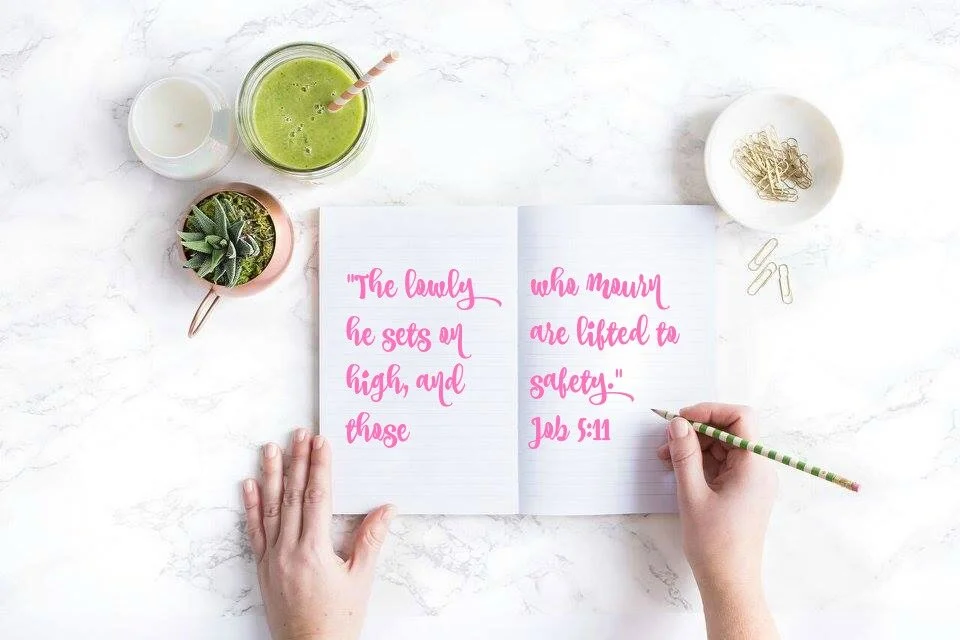 "The lowly
he sets on
high, and
those
who mourn
are lifted to
safety."
Job 5:11